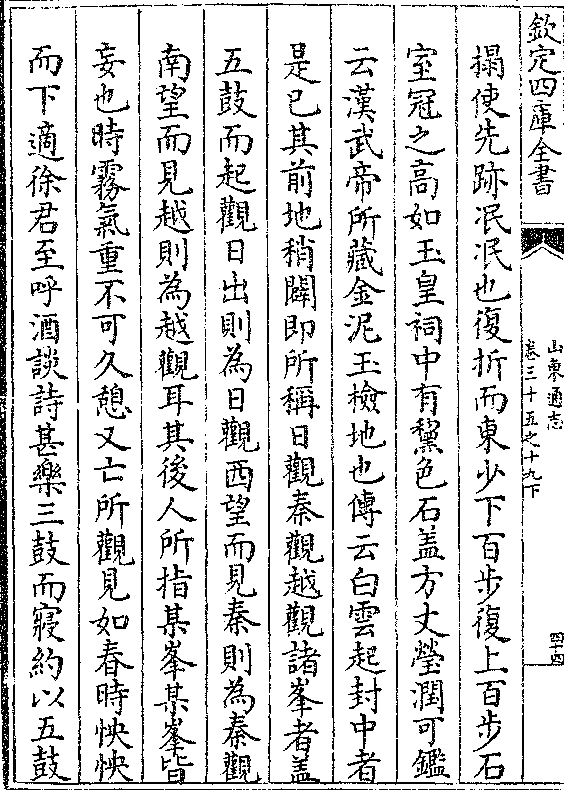 欽定四庫全書
山東通志
卷三十五之十九下
四十四
搨使先跡泯泯也復折而東少下百步復上百步石
室冠之高如玉皇祠中有黧色石盖方丈瑩潤可鑑
云漢武帝所藏金泥玉檢地也傳云白雲起封中者
是已其前地稍闊即所稱日觀秦觀越觀諸峯者盖
五鼓而起觀日出則為日觀西望而見秦則為秦觀
南望而見越則為越觀耳其後人所指某峯某峯皆
妄也時霧氣重不可久憩又亡所觀見如春時怏怏
而下適徐君至呼酒談詩甚樂三鼓而寢約以五鼓